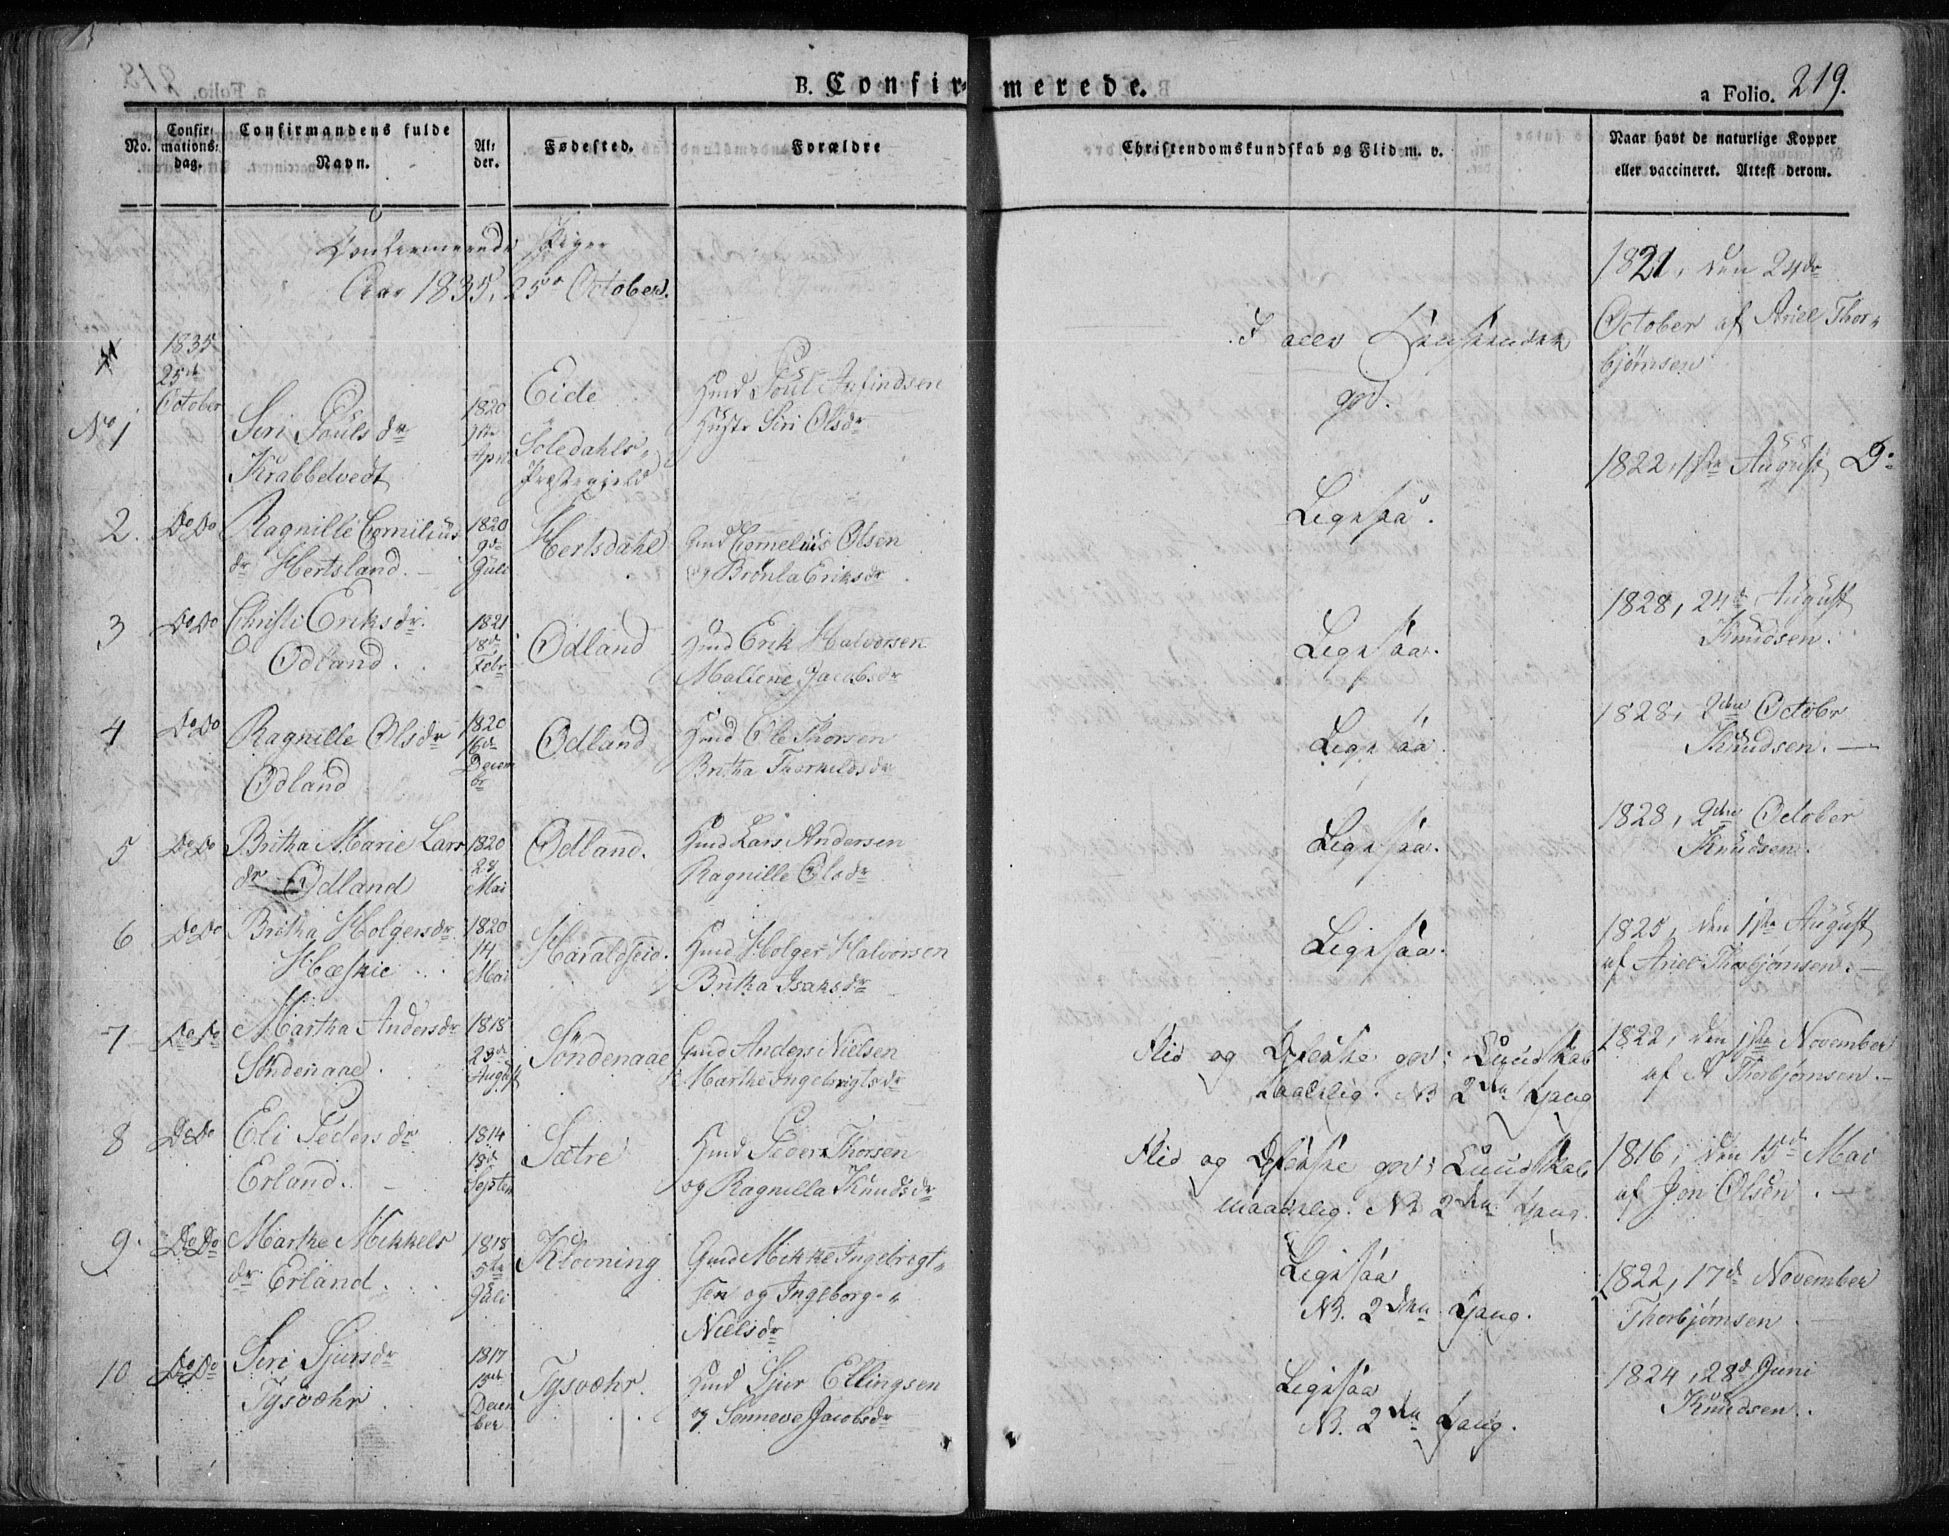 B. Confirmerede.
a Folio. 219.
No.
Confirmations: dag.
Confirmandens fulde Navn.
Alder.
Fødested.
Forældre
Christendomskundskab og Flid m. v.
Naar havt de naturlige Kopper eller vaccineret. Attest derom.
Confirmerede Piger
Aar 1835, 25de October.
No 1
1835 25de October
Siri Pouls dr Krabbetvedt
1820 April
Eide Soledahls Præstegield
Gmd Poul Arfindsen
Hustr Siri Olsdr
god.
1821, den 24de
October af Ariel Thor-
bjørnsen
2. Do Do
Ragnille Cornelius
dr Hertsland.
1820 9de Juli
Hertsdahl
Gmd Cornelius Olsen
og Brönla Eriksdr
Ligesaa.
1822, 1ste August Do
3 Do Do
Christi Eriksdr.
Odland.
1821 18de Febr
Odland
Gmd Erik Halvorsen
Maliene Jacobsdr
Ligesaa.
1828, 24de August
Knudsen.
4 Do Do
Ragnille Olsdr
Odland
1820 16de Decembr
Odland
Gmd Ole Thorsen
Britha Thorkildsdr
Ligesaa
1828, 2den Octobr
Knudsen.
5 Do Do
Britha Marie Lars
dr Odland
1820 28 Mai
Odland.
Gmd Lars Andersen
Ragnille Olsdr
Ligesaa.
1828, 2den October
Knudsen.
6 Do Do
Britha Holgersdr
Hæskie
1820 14 Mai
Haraldseid.
Gmd Holger Halvorsen
Britha Isaksdr
Ligesaa.
1825, den 1ste August
af Ariel Thorbjørnsen.
7 Do Do
Martha Andersdr
Söndenaae
1818 23de August
Söndenaae
Gmd Anders Nielsen
Marthe Ingebrigtsdr
Flid og Opførsel god; Kundskab
maadelig. NB 2den Gang
1822, den 1ste November
af A Thorbjørnsen.
8 Do Do
Eli Peders dr
Erland.
1814 18de Septem
Sætre
Gmd Peder Thorsen
og Ragnilla Knudsdr
Flid og Opførsel god; Kundskab
maadelig. NB 2den Gang.
1816, den 15de Mai
af Jon Olsen.
9. Do Do
Marthe Mikkels
dr Erland.
1818 5te Juli
Klovning
Gmd Mikke Ingebregt-
sen og Ingeborg
Nielsdr
Ligesaa
NB. 2den Gang.
1822, 17de November
Thorbjørnsen
10 Do Do
Siri Sjursdr
Tysvæhr
1817 15de December
Tysvæhr.
Gmd Sjur Ellingsen
og Sönneve Jacobsdr
Ligesaa
NB. 2den Gang.
1824, 28de Juni
Knudsen.